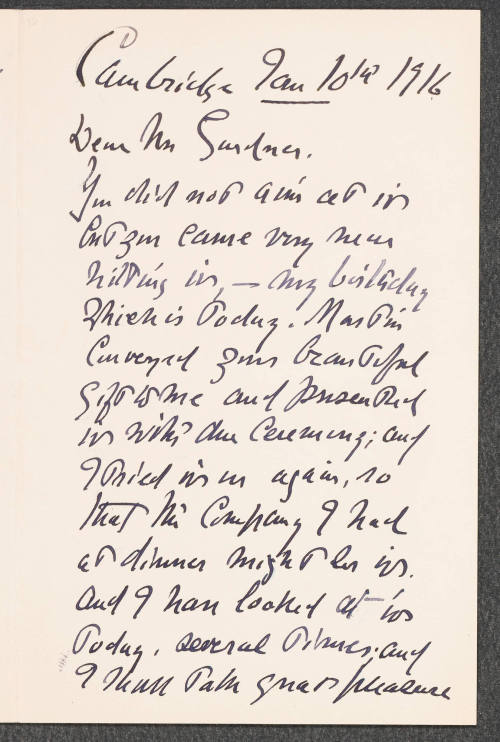 Cambridge Jan 10th 1916
Dear Mrs Gardner.
You did not aim at it
but you came very near
hitting it, — my birthday
which is today. Martin
conveyed your beautiful
gift to me and presented
it with due ceremony; and
I tried it on again, so
that the Company I had
at dinner might see it.
and I have looked at it
today. several times; and
I shall take great pleasure